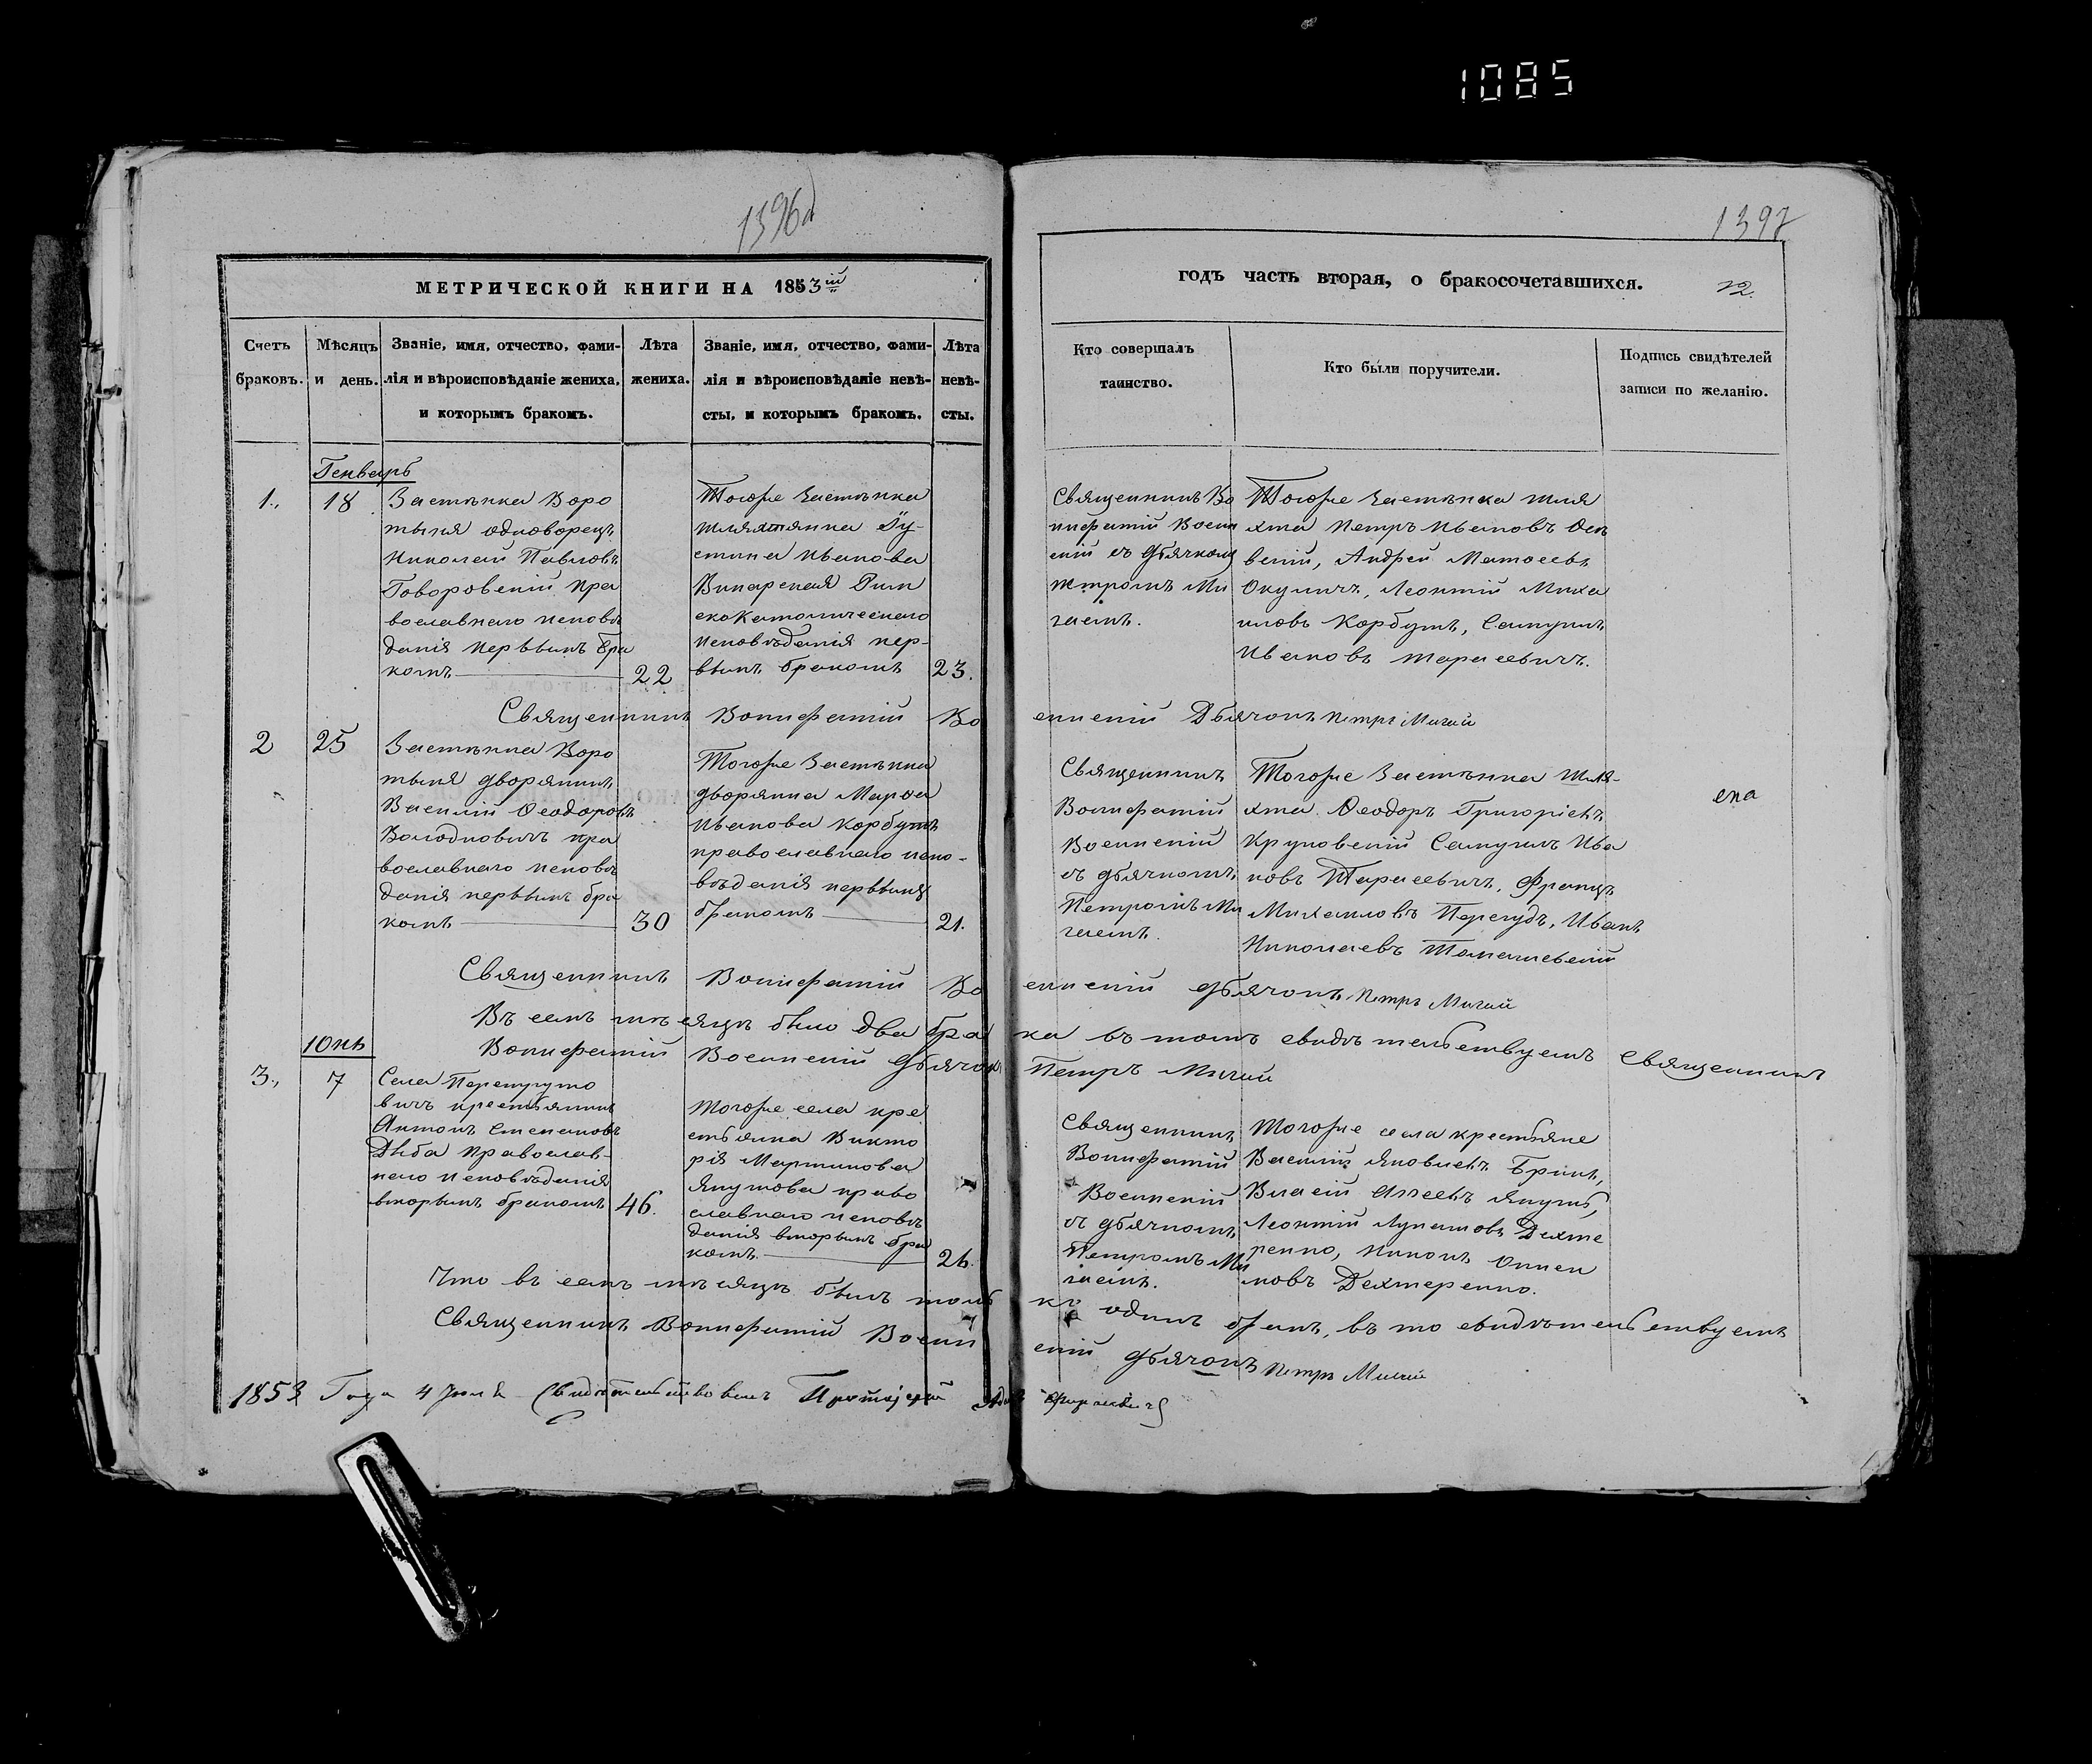 1085
1396
1397
МЕТРИЧЕСКОЙ КНИГИ НА 1853ій
годъ часть вторая, о бракосочетавшихся.
12.
Счетъ браковъ.
Мѣсяцъ и день.
Званіе, имя, отчество, фами-
лія и вѣроисповѣданіе жениха,
и которымъ бракомъ.
Лѣта
жениха.
Званіе, имя, отчество, фами-
лія и вѣроисповѣданіе невѣ-
сты, и которымъ бракомъ.
Лѣта
невѣ-
сты.
Кто совершалъ
таинство.
Кто были поручители.
Подпись свидѣтелей
записи по желанію.
Генварь
1., 18
Застѣнка Воро
тыня одноворецъ
Николай Павловъ
Говоровскій пра
вославнаго исповѣ
данія первымъ бра
комъ 22
Тогоже Застѣнка
шляхтянка Іу-
стина Иванова
Винарская Рим
скокатолическаго
исповѣданія пер-
вымъ бракомъ 23.
Священникъ Во
нифатій Воин
скій съ дьячкомъ
Петромъ Ми
гаемъ.
Тогоже Застѣнка шля
хта Петръ Ивановъ
Андрей Матөеевъ
Окуличъ, Леонтій Миха
иловъ Корбутъ, Самуилъ
Ивановъ Тарасевичъ.
Священникъ Вонифатій Во инскій Дьячокъ Петръ Мигай
2 25
Застѣнка Воро
тыня дворянинъ
Василій Ѳеодоровъ
Володковичъ пра
вославнаго исповѣ
данія первымъ бра
комъ 30
Тогоже Застѣнка
дворянка Марѳа
Иванова Корбутъ
православнаго испо-
вѣданія первымъ
бракомъ 21.
Священникъ
Вонифатій
Воинскій
съ дьячкомъ
Петромъ Ми
гаемъ.
Тогоже Застѣнка шля-
хта Ѳеодоръ Григоріевъ
Круковскій Самуилъ Ива
новъ Тарасевичъ, Францъ
Михайловъ Перегудъ, Иванъ
Николаевъ Томашевскій
Священникъ Вонифатій Во инскій дьячокъ Петръ Мигай
Въ семъ мѣсяцѣ было два бра ка въ томъ свидѣтельствуемъ Священникъ
Вонифатій Воинскій дьячокъ Петръ Мигай
Юнь
3., 7
Села Перетруто
вичъ крестьянинъ
Антонъ Степановъ
Дзюба православ-
наго исповѣданія
вторымъ бракомъ 46.
Тогоже села кре
стьянка Викто
рія Мартинова
Якутова право
славнаго исповѣ
данія вторымъ бра
комъ 26.
Священникъ
Вонифатій
Воинскій
съ дьячкомъ
Петромъ Ми
гаемъ.
Тогоже села крестьяне
Василій Яковлевъ
Власій
Леонтій Лукашовъ Дехте
ренко, Никонъ
мовъ Дехтеренко.
Что въ семъ мѣсяцѣ былъ толь ко одинъ бракъ, въ то свидѣтельствуемъ
Священникъ Вонифатій Воин скій дьячокъ Петръ Мигай
1853 Года 4 Іюля Свидѣтельствовалъ Протоіерей